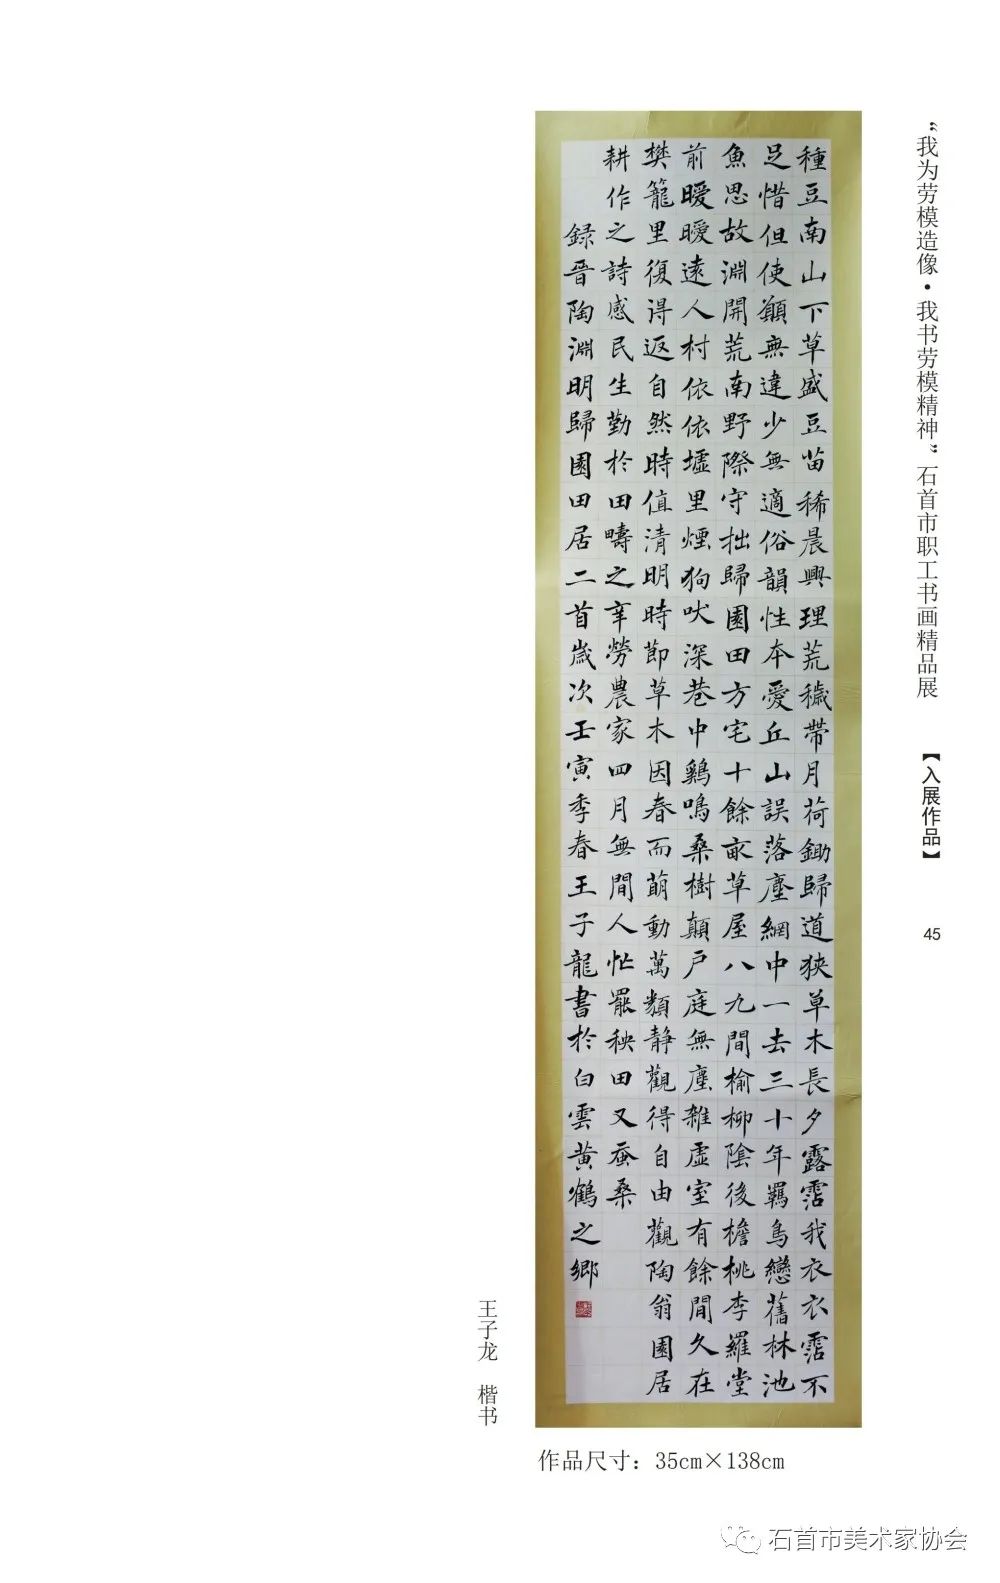 “我为劳模造像·我书劳模精神”石首市职工书画精品展
【入展作品】
45
種豆南山下草盛豆苗稀晨興理荒穢帶月荷鋤歸道狹草木長夕露霑我衣衣霑不
足惜但使願無違少無適俗韻性本愛丘山誤落塵網中一去三十年羈鳥戀舊林池
魚思故淵開荒南野際守拙歸園田方宅十餘畝草屋八九間榆柳陰後檐桃李羅堂
前曖曖遠人村依依墟里煙狗吠深巷中鷄鳴桑樹顛戶庭無塵雜虛室有餘間久在
樊籠里復得返自然時值清明時節草木因春而萌動萬類靜觀得自由觀陶翁園居
耕作之詩感民生勤於田疇之辛勞農家四月無間人忙罷秧田又蚕桑
録晉陶淵明歸園田居二首歲次壬寅季春王子龍書於白雲黄鶴之鄉
王子龙 楷书
作品尺寸：35cm×138cm
石首市美术家协会